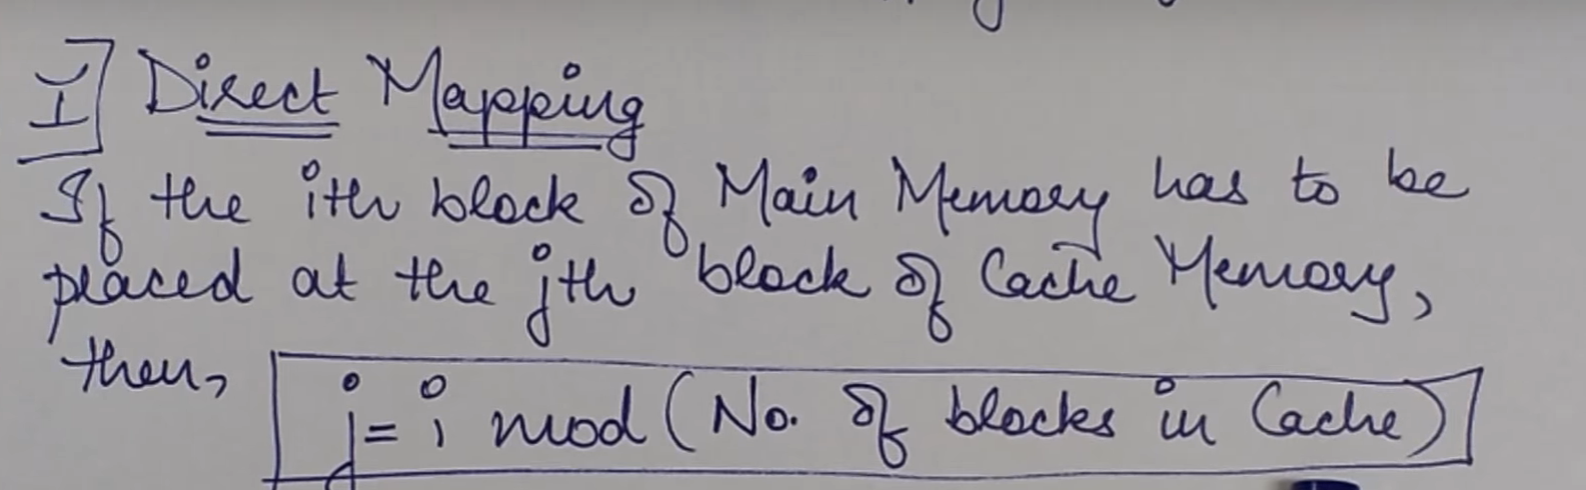 I] Direct Mapping
If the ith block of Main Memory has to be
placed at the jth block of Cache Memory,
then,
j = i mod (No. of blocks in Cache)